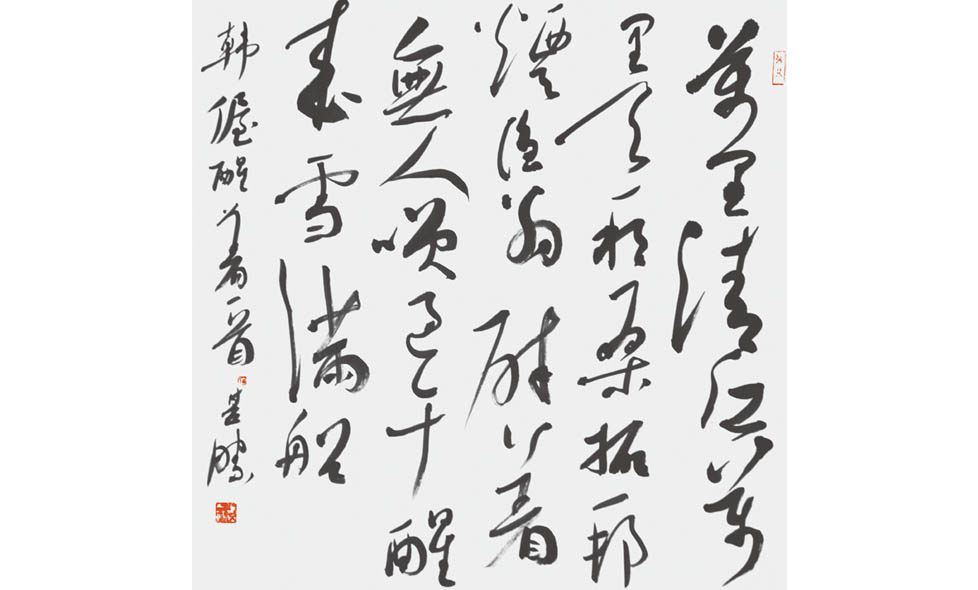 萬里清江萬
里天一村桑柘一邨
煙漁翁醉着
無人喚過午醒
來雪滿船
韓偓醒着一首